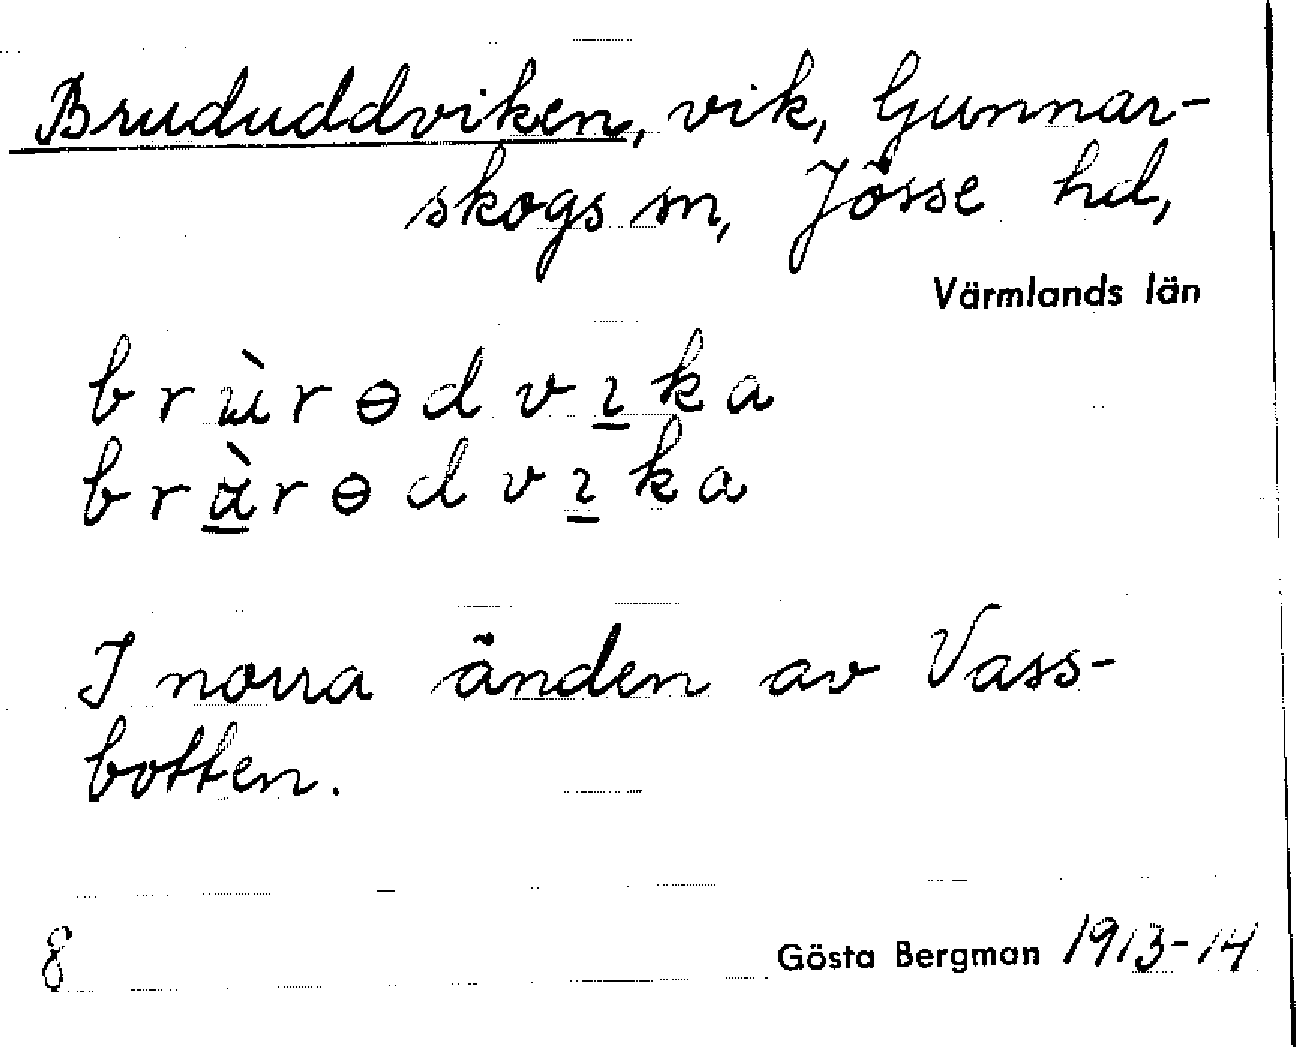 Brududdviken, vik, Gunnar-
skogs sn, Jösse hd,
Värmlands län
brùrɵdvı̲ka
brà̲rɵdvı̲ka
I norra änden av Vass-
botten.
8
Gösta Bergman 1913-14